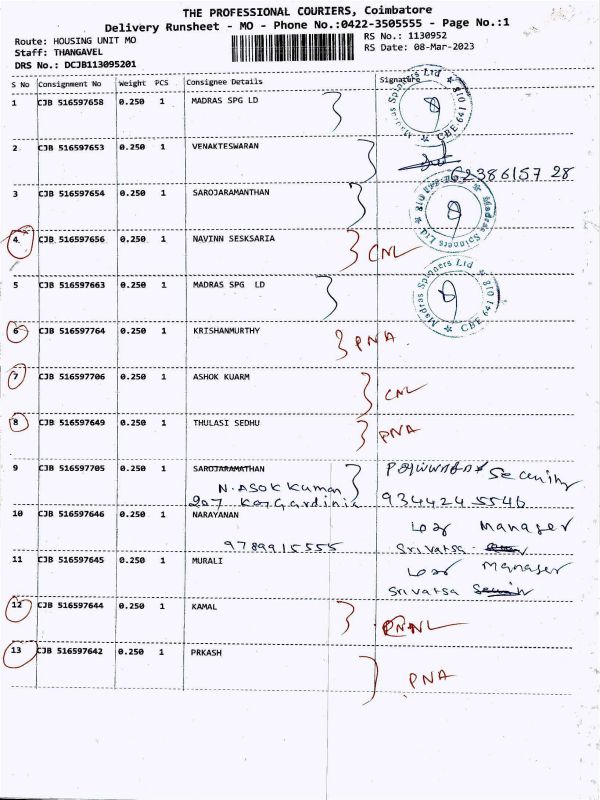 THE PROFESSIONAL COURIERS, Coimbatore
Delivery Runsheet - MO - Phone No.:0422-3505555 - Page No.:1
Route: HOUSING UNIT MO
RS No.: 1130952
Staff: THANGAVEL
RS Date: 08-Mar-2023
DRS No.: DCJB113095201
S No Consignment No Weight PCS Consignee Details Signature
1 CJB 516597658 0.250 1 MADRAS SPG LD
Madras Spinners Ltd ★ CBE 641 018 ★
2 CJB 516597653 0.250 1 VENAKTESWARAN
6238615728
3 CJB 516597654 0.250 1 SAROJARAMANTHAN
Madras Spinners Ltd
4 CJB 516597656 0.250 1 NAVINN SESKSARIA CNL
5 CJB 516597663 0.250 1 MADRAS SPG LD
Madras Spinners Ltd ★ CBE 641 018
6 CJB 516597764 0.250 1 KRISHANMURTHY PNA
7 CJB 516597706 0.250 1 ASHOK KUARM CNL
8 CJB 516597649 0.250 1 THULASI SEDHU PNA
9 CJB 516597705 0.250 1 SAROJARAMATHAN Security
N. ASOK KUMAR
207 KG Gardinia 9344245546
10 CJB 516597646 0.250 1 NARAYANAN Manager
9789915555 Srivatsa
11 CJB 516597645 0.250 1 MURALI Manager
Srivatsa
12 CJB 516597644 0.250 1 KAMAL
13 CJB 516597642 0.250 1 PRKASH PNA